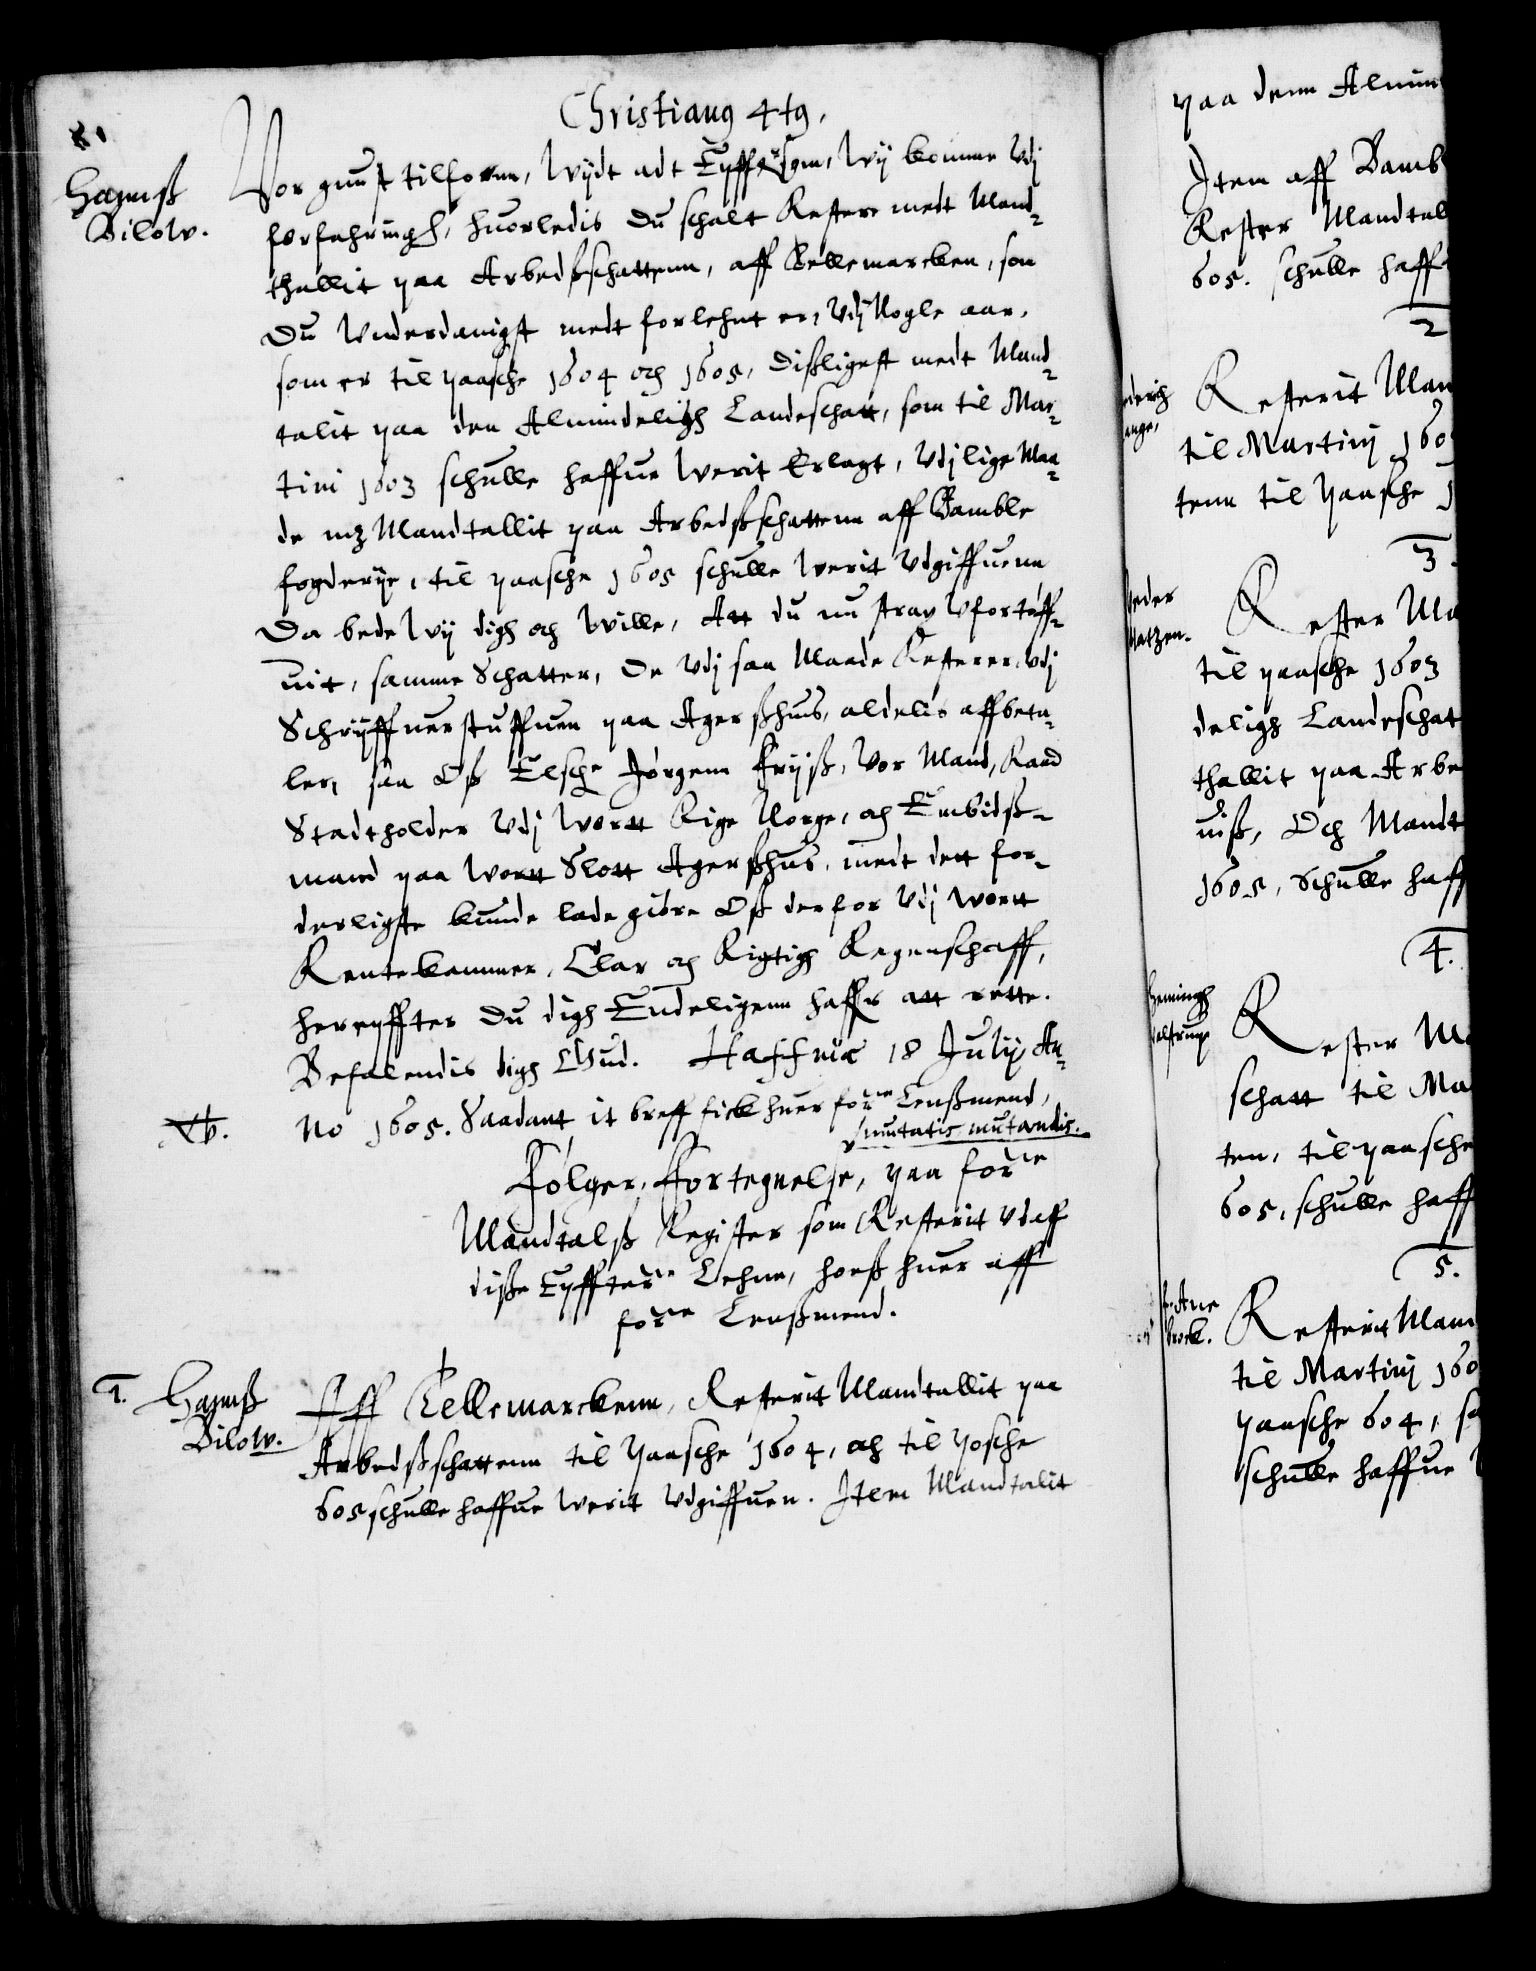 Christianus 4tus.
Hannß
Bilow.
Vor gunst tilfornn, Wijdt adt Efftersom, Wij komme Vdj
forfahringh, huorledis Du schalt Restere medt Mand-
thallit paa Arbedßschattenn, aff Tellemarcken, som
Du Vnderdanigst medt forlehnt er, Vdj Nogle aar,
som er til paasche 1604 och 1605, Dißligest medt Mand-
talit paa den Almindeligh Landeschatt, som til Mar-
tini 1603 schulle haffue Werit Erlagt, Vdj lige Maa-
de mz Mandtallit paa Arbedßschattenn aff Bamble
fogderije, til paasche 1605 schulle Werit Vdgiffuenn
Da bede Wij digh och Wille, Att du nu strax Vfortøff-
uit, samme Schatter, De Vdj saa Maade Resterer, Vdj
Schrijffuerstuffuen paa Agerßhus, aldelis affbeta-
ler, saa Oß Elsche Jørgenn Frijß, Vor Mand, Raad
Stadtholder Vdj Wortt Rige Norge, och Embidß-
mand paa Wortt Slott Agerßhus, medt dett for-
derligste kunde lade giøre Oß derfor Vdj Wortt
Rentekammer, Clar och Rigtigh Regenschaff,
hereffter Du digh Endeligenn haffr att rette.
Befalendis digh Gud. Haffniæ 18 Julij An-
no 1605. Saadant it breff fick huer forne Lenßmend,
mutatis mutandis.
Følger, Fortegnelse, paa forne
Mandtalß Register som Resterit Vdaff
diße Effterne Lehne, hoeß huer aff
forne Lenßmend.
1. Hannß
Bilow.
Aff Tellemarckenn, Resterit Mandtallit paa
Arbedßschattenn til Paasche 1604, och til Posche
605 schulle haffue Werit Vdgiffuen. Item Mandtalit
paa denn Almin
Item aff Bamb
Rester Mandtal
605. schulle haff
2
Resterit Man
til Martinj 160
tenn til Paasche 1
3.
Rester Ma
til paasche 1603
deligh Landeschat
thallit paa Arbe
niß, Och Mandt
1605, Schulle haff
4.
Rester Ma
schatt til Ma
ten, til paasche
605, schulle haff
5.
Resterit Mand
til Martinj 160
paasche 604, s
schulle haffue